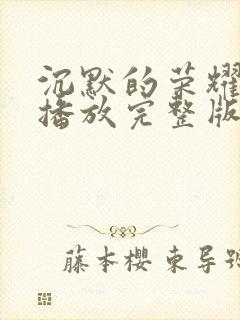 沉默的荣耀
播放完整版
藤本樱 东导